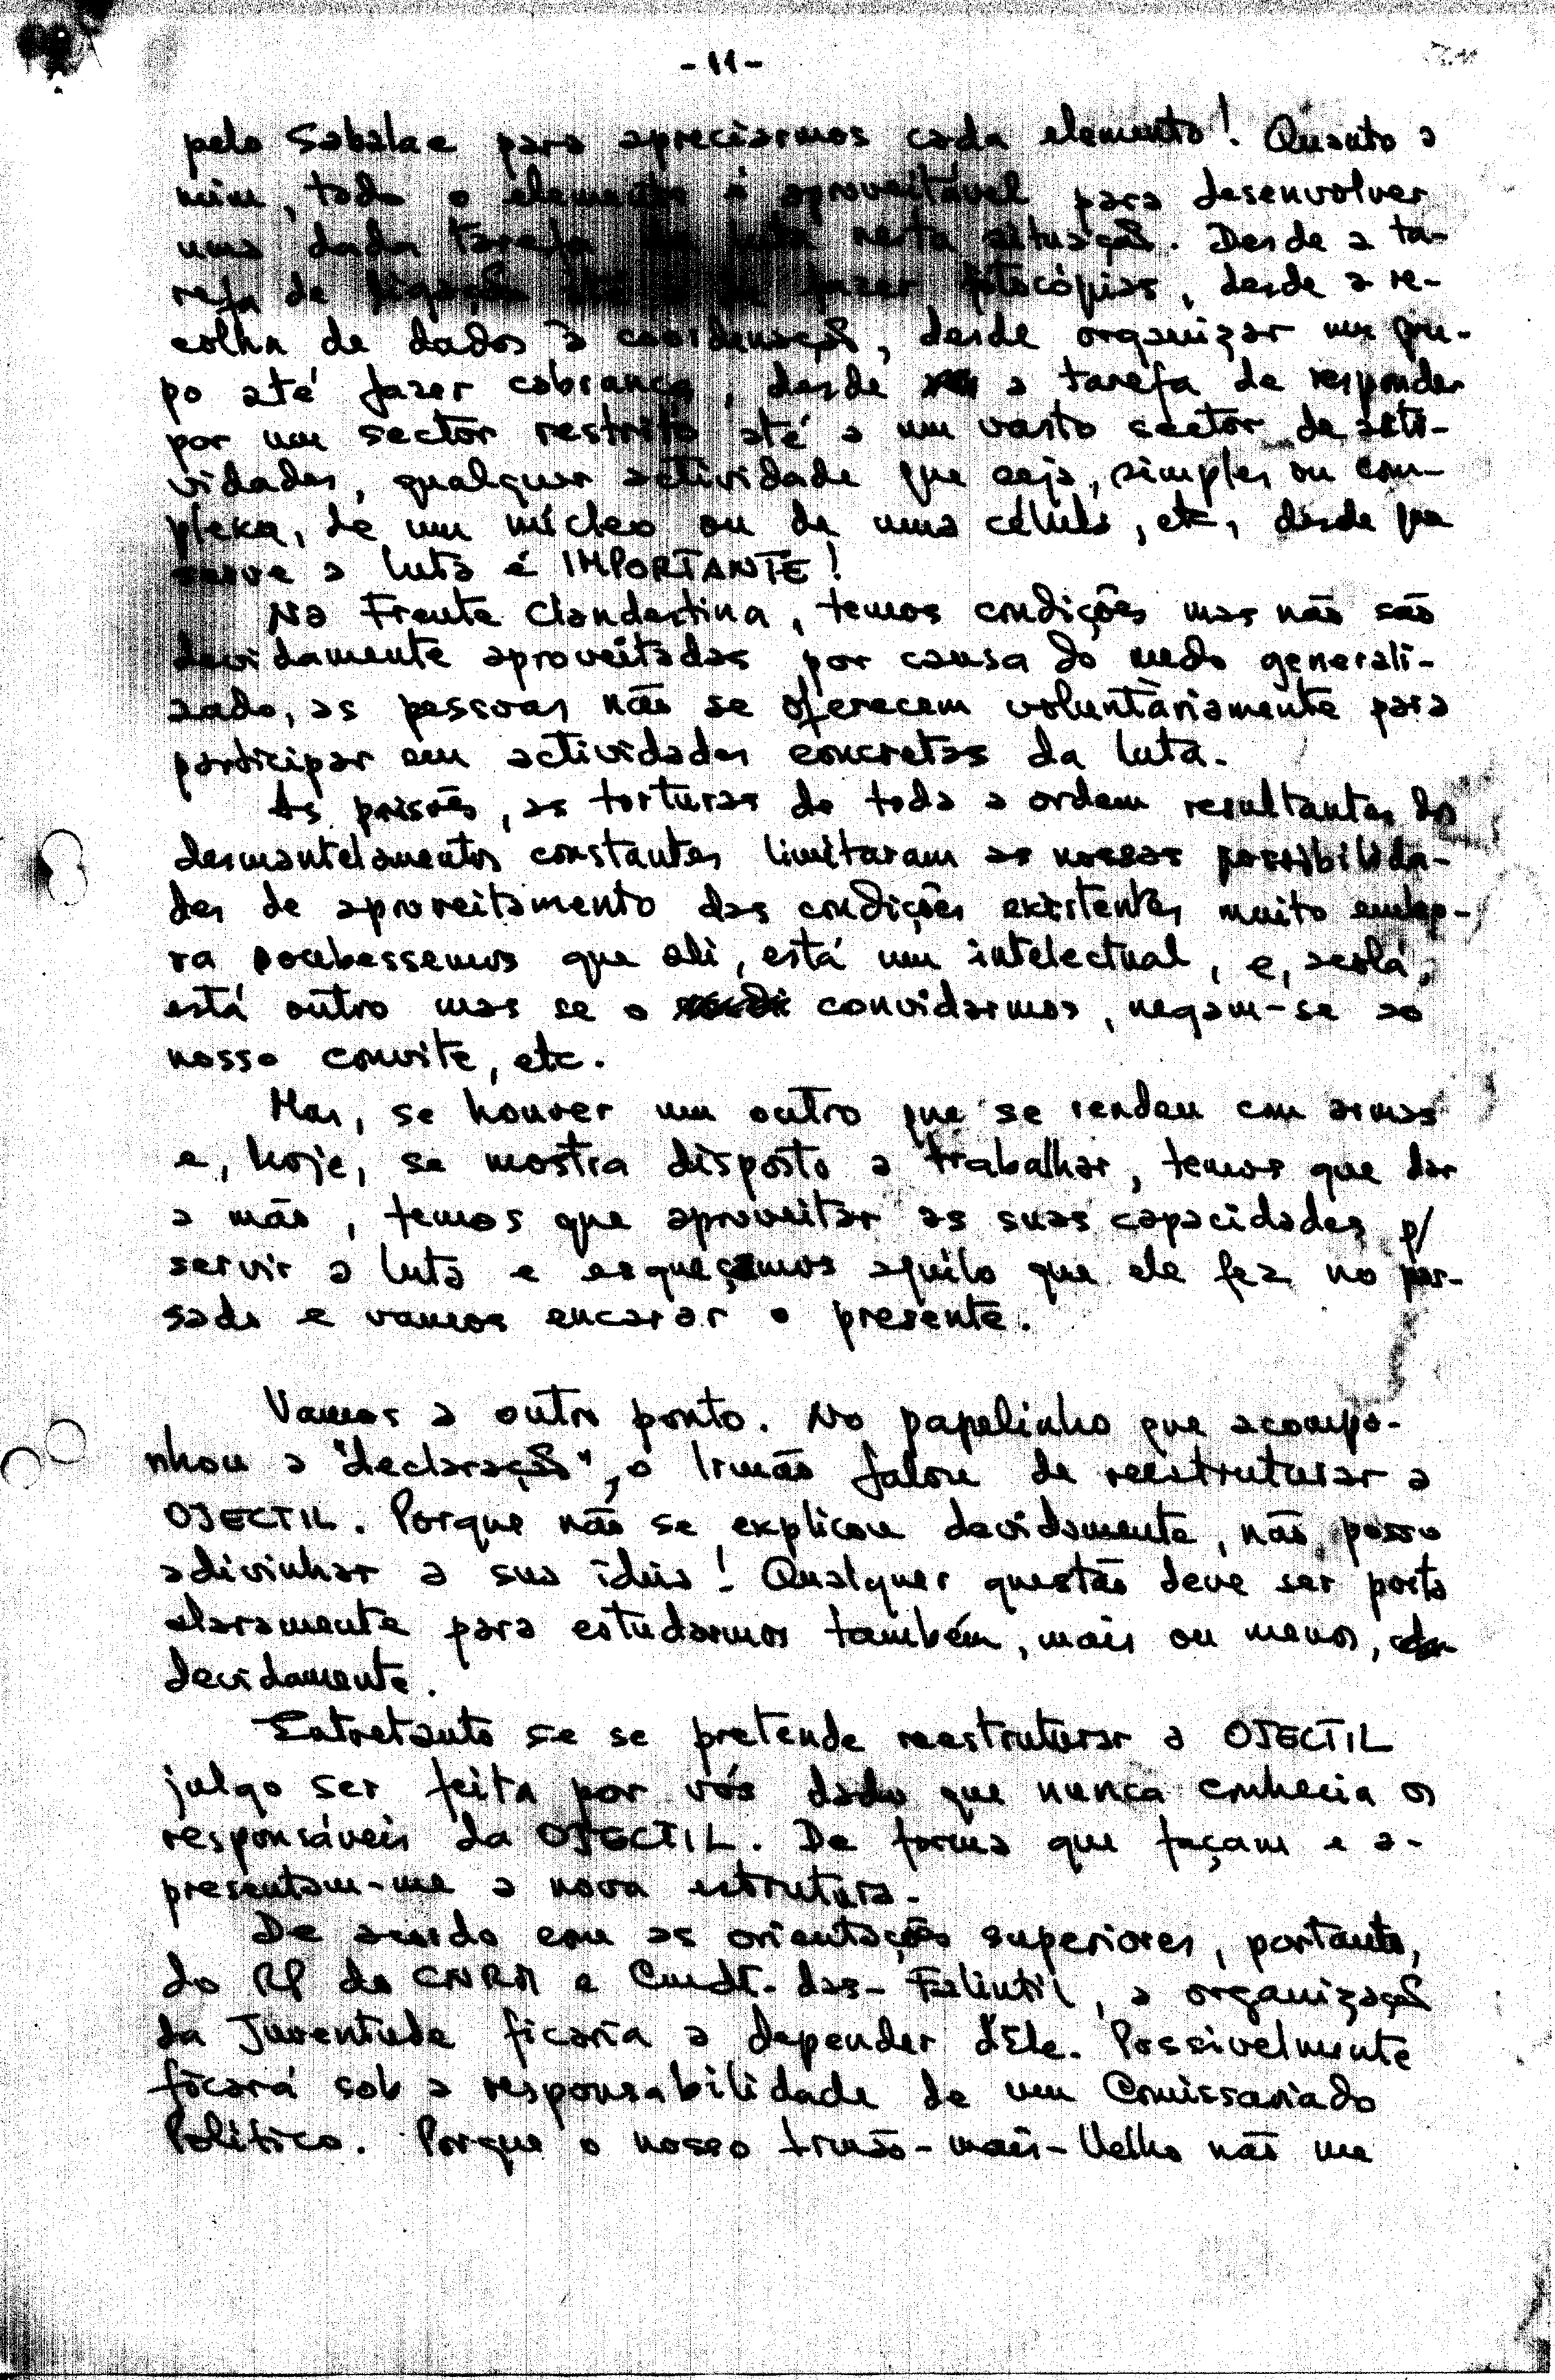 -11-
pelo Sabalae para apreciarmos cada elemento! Quanto a
mim, todo o elemento é aproveitável para desenvolver
uma dada tarefa da luta nesta situação. Desde a ta-
refa de ligação até a de fazer fotocópias, desde a re-
colha de dados à coordenação, desde organizar um gru-
po até fazer cobrança, desde a tarefa de responder
por um sector restrito até a um vasto sector de acti-
vidades, qualquer actividade que seja, simples ou com-
plexa, de um núcleo ou de uma célula, etc, desde que
serve a luta é IMPORTANTE!
Na Frente Clandestina, temos condições mas não são
devidamente aproveitadas por causa do medo generali-
zado, as pessoas não se oferecem voluntàriamente para
participar em actividades concretas da luta.
As prisões, as torturas de toda a ordem resultantes dos
desmantelamentos constantes limitaram as nossas possibilida-
des de aproveitamento das condições existentes muito embo-
ra soubessemos que ali, está um intelectual, e, acolá,
está outro mas se o convidarmos, negam-se ao
nosso convite, etc.
Mas, se houver um outro que se rendeu com armas
e, hoje, se mostra disposto a trabalhar, temos que dar
a mão, temos que aproveitar as suas capacidades p/
servir a luta e esqueçamos aquilo que ele fez no pas-
sado e vamos encarar o presente.
Vamos a outro ponto. No papelinho que acompa-
nhou a "declaração", o Irmão falou de reestruturar a
OJECTIL. Porque não se explicou devidamente, não posso
adivinhar a sua ideia! Qualquer questão deve ser posta
claramente para estudarmos também, mais ou menos,
devidamente.
Entretanto se se pretende reestruturar a OJECTIL
julgo ser feita por vós dado que nunca conhecia os
responsáveis da OJECTIL. De forma que façam e a-
presentam-me a nova estrutura.
De acordo com as orientações superiores, portanto,
do RP do CNRM e Cmdt-das-Falintil, a organização
da Juventude ficaria a depender d'Ele. Possivelmente
ficará sob a responsabilidade de um Comissariado
Político. Porque o nosso Irmão-mais-Velho não me